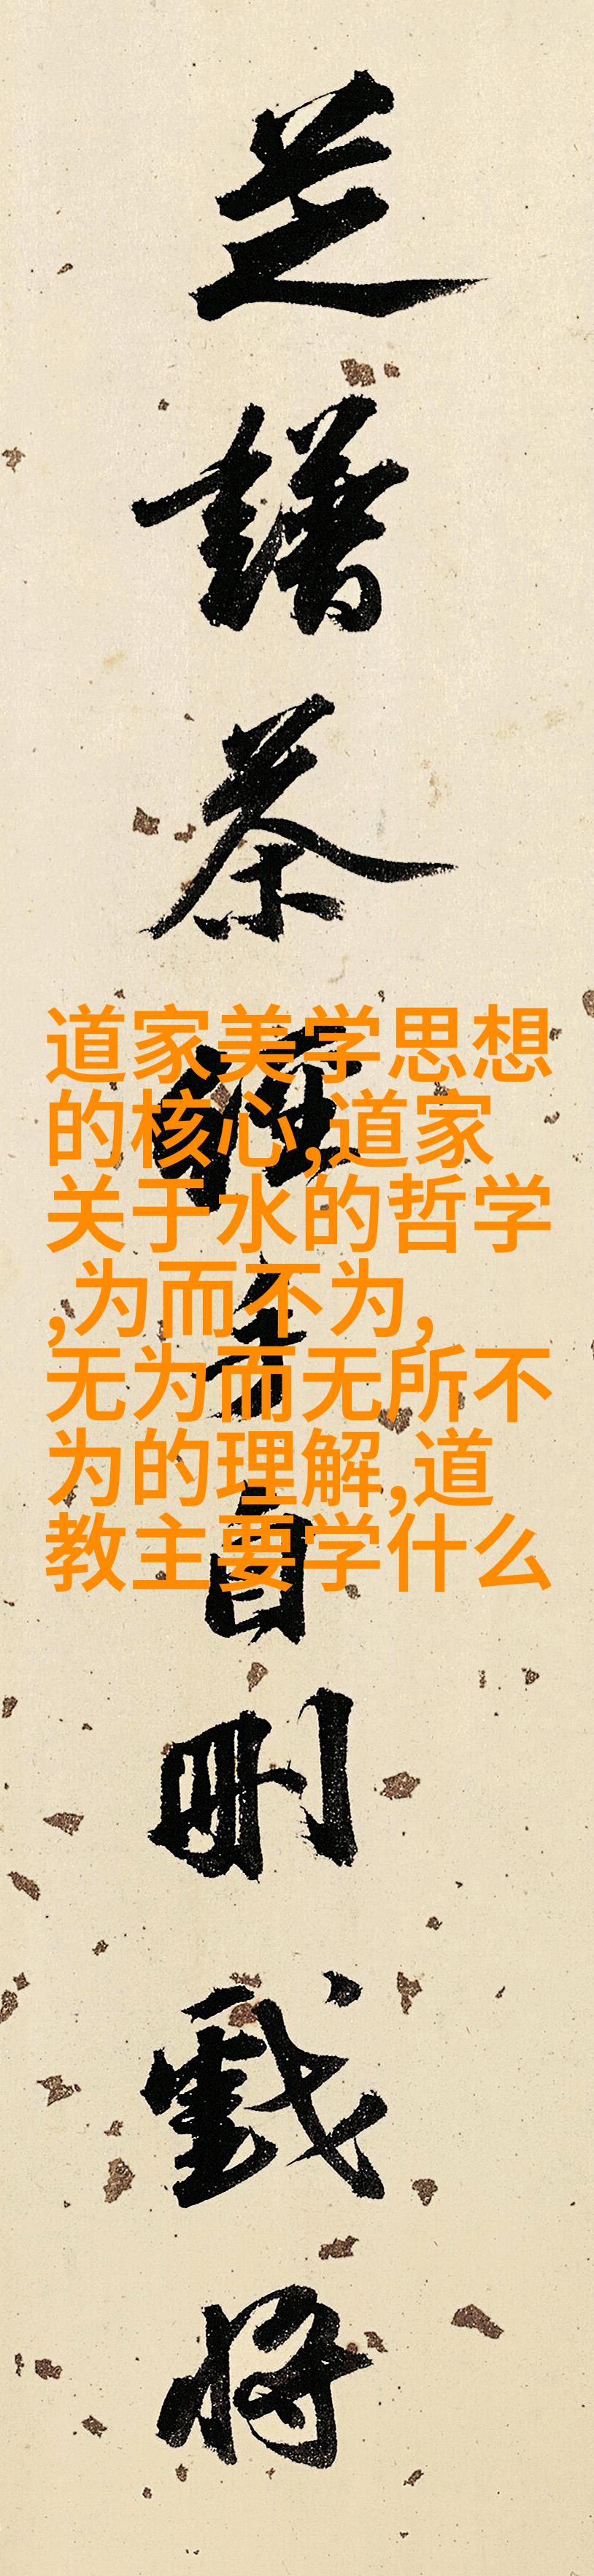 芝譜茶經手自刪戲將
道家美学思想
的核心,道家
关于水的哲学
,为而不为,
无为而无所不
为的理解,道
教主要学什么